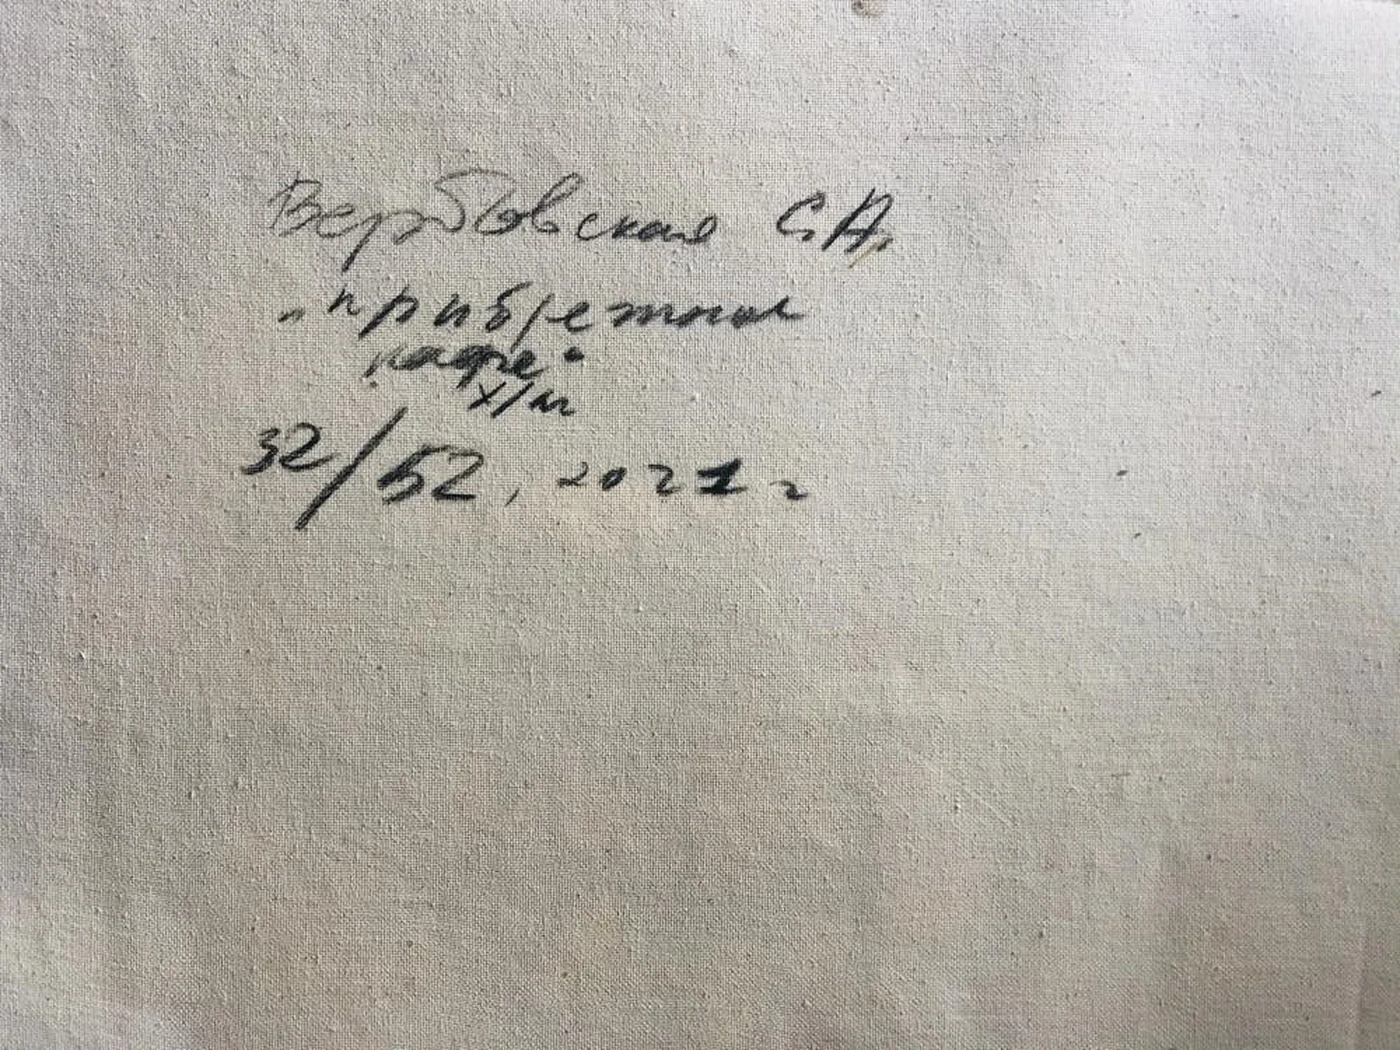 Вербовская С.А.
"прибрежное
кафе"
х/м
32/52, 2021 г